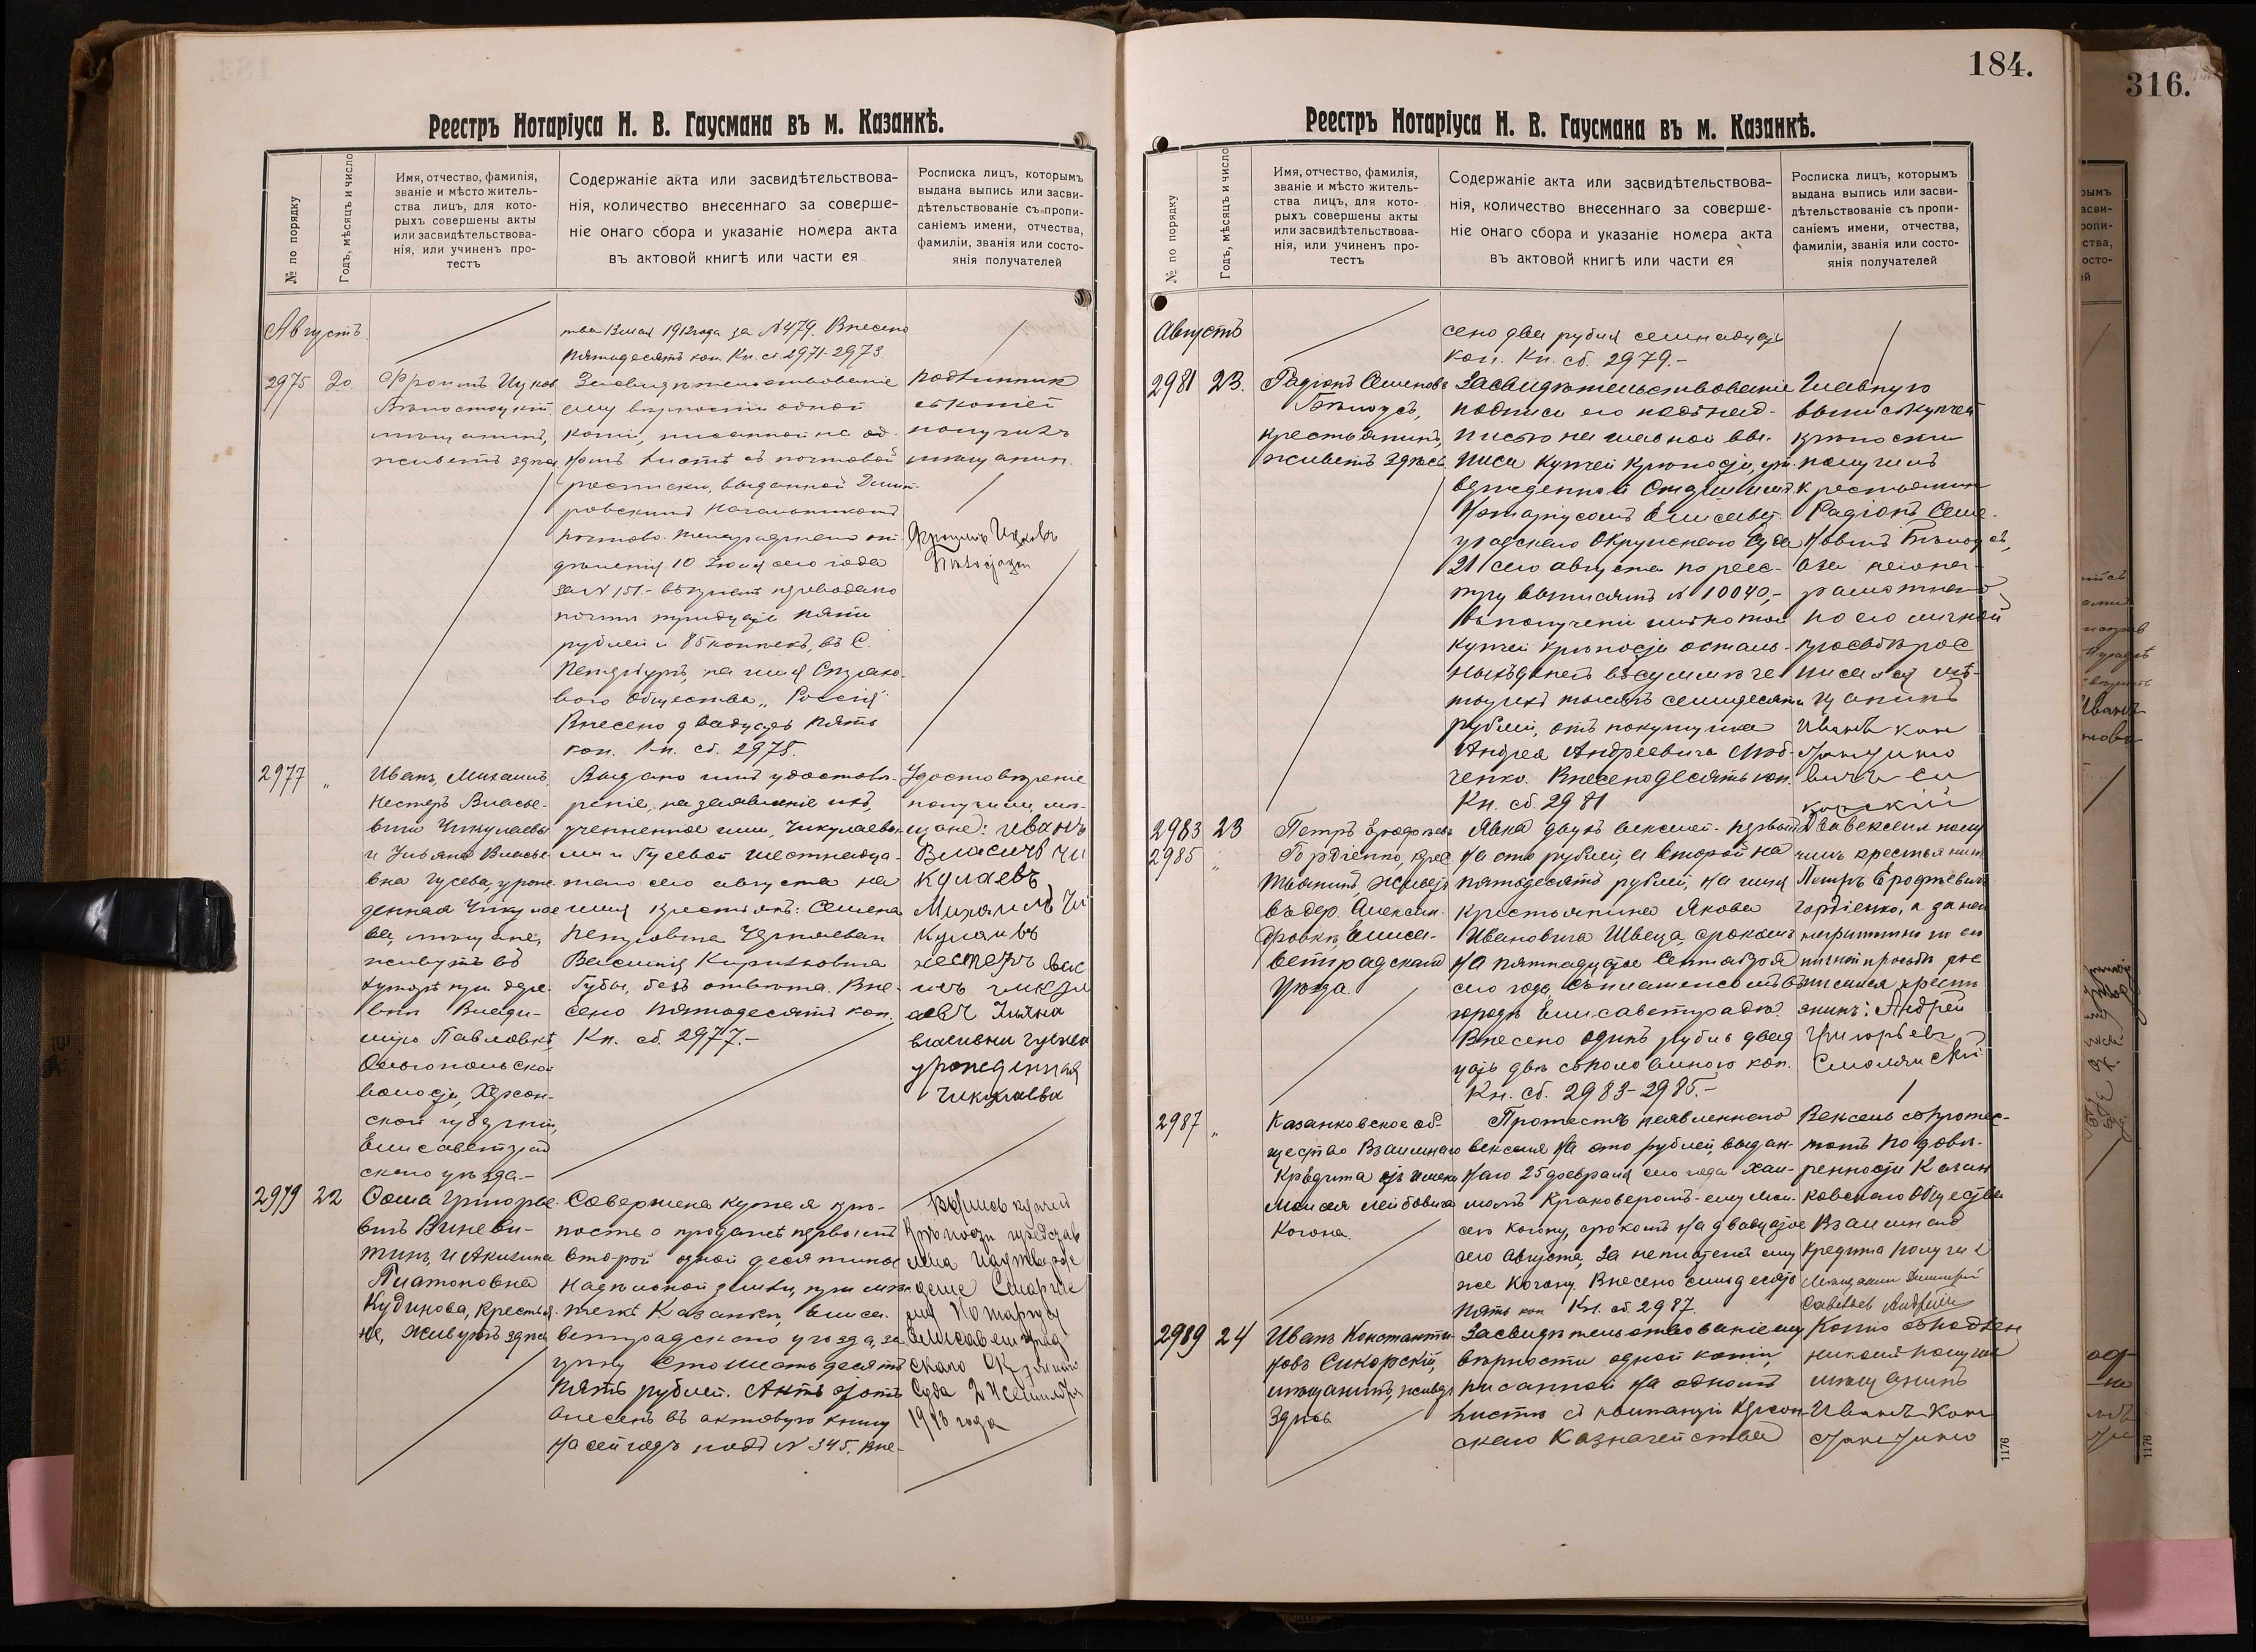 Реестръ Нотаріуса Н. В. Гаусмана въ м. Казанкѣ.
№ по порядку
Годъ, мѣсяцъ и число
Имя, отчество, фамилія,
званіе и мѣсто житель-
ства лицъ, для кото-
рыхъ совершены акты
или засвидѣтельствова-
нія, или учиненъ про-
тестъ
Содержаніе акта или засвидѣтельствова-
нія, количество внесеннаго за соверше-
ніе онаго сбора и указаніе номера акта
въ актовой книгѣ или части ея
Росписка лицъ, которымъ
выдана выпись или засви-
дѣтельствованіе съ пропи-
саніемъ имени, отчества,
фамиліи, званія или состо-
янія получателей
Августъ
1912 года за № 479. Внесено
пятьдесятъ коп. Кн. сб. 2971-2973.
2975
20
Фроимъ Ицков
Бѣлостоцкій
мѣщанинъ,
живетъ здѣсь
Засвидѣтельствованіе
ему вѣрности одной
копіи, писанной на од-
номъ листѣ съ почтовой
росписки, выданной
ровскимъ Начальникомъ
почтово-телеграфнаго от-
дѣленія 10 Іюня сего года
за № 151.- въ пріемѣ перевода по
почтѣ тридцати пяти
рублей и 85 копѣекъ, въ С.
Петербургъ, на имя Страхо-
вого Общества „Россія"
Внесено двадцать пять
коп. Кн. сб. 2975.
Подлинникъ
съ копіей
получилъ
мѣщанин.
Фроимъ Ицковъ
2977
"
Иванъ, Михаилъ,
Нестеръ Власье-
вичи Чикулаевы
и Ульяна Власье-
вна Гусева, урож-
денная Чикулае-
ва, мѣщане,
живутъ въ
хуторѣ при дере-
вни Влади-
міро Павловкѣ,
Ольгопольской
волости, Херсон-
ской губерніи,
Елисаветград-
скаго уѣзда.-
Выдано имъ удостовѣ-
реніе, на заявленіе ихъ,
учиненное ими, Чикулаевы-
ми и Гусевой шестнадца-
таго сего августа на
имя крестьянъ: Семена
Петровича
Василія Кириловича
Губы, безъ отвѣта. Вне-
сено пятьдесятъ коп.
Кн. сб. 2977.-
Удостовѣреніе
получили, мѣ-
щане: Иванъ
Власичъ Чи
кулаевъ
Михаилъ Чи
кулаивъ
нестеръ влас
ичъ чикул
аевъ Ульяна
власивна гусева
урожденная
чикулаева
2979
22
Ѳома Григорье-
вичъ Виневи-
тинъ, и Акилина
Платоновна
Кудинова, крестья-
не, живутъ здѣсь
Совершена купчая крѣ-
пость о продажѣ первымъ
второй одной десятины
надѣльной земли, при мѣ-
течкѣ Казанкѣ, Елиса-
ветградскаго уѣзда, за
цѣну сто шестьдесятъ
пять рублей. Актъ этотъ
внесенъ въ актовую книгу
на сей годъ подъ № 345. Вне-
Выпись купчей
крѣпости представ
лена на утверж
деніе Старше
му Нотаріусу
Елисаветград
скаго Окружного
Суда 2 Сентября
1913 года
184.
Реестръ Нотаріуса Н. В. Гаусмана въ м. Казанкѣ.
№ по порядку
Годъ, мѣсяцъ и число
Имя, отчество, фамилія,
званіе и мѣсто житель-
ства лицъ, для кото-
рыхъ совершены акты
или засвидѣтельствова-
нія, или учиненъ про-
тестъ
Содержаніе акта или засвидѣтельствова-
нія, количество внесеннаго за соверше-
ніе онаго сбора и указаніе номера акта
въ актовой книгѣ или части ея
Росписка лицъ, которымъ
выдана выпись или засви-
дѣтельствованіе съ пропи-
саніемъ имени, отчества,
фамиліи, званія или состо-
янія получателей
Августъ
сено два рубля семнадцать
коп. Кн. сб. 2979.-
2981
23.
Радіонъ Семеновъ
Бѣлоусъ,
крестьянинъ,
живетъ здѣсь
Засвидѣтельствованіе
подписи его подъ над-
писью на главной вы-
писи купчей крѣпости, ут-
вержденной Старшимъ
Нотаріусомъ Елисавет-
градскаго Окружнаго Суда
21 сего августа по реес-
тру выписямъ № 10040,-
въ полученіи имъ по той
купчей крѣпости осталь-
ныхъ денегъ въ суммѣ че-
тырехъ тысячъ семидесяти
рублей, отъ покупщика
Андрея Андреевича
ченко. Внесено десять коп.
Кн. сб. 2981
Главную
выпись купчей
крѣпости
получилъ
крестьянинъ
Радіонъ Семе-
новичъ Бѣлоусъ,
а за неграмотнаго
по его личной
просьбѣ рос
писался мѣ-
щанинъ
Иванъ Кон
стантино
вичъ Си
корскій
2983
2985
23
"
Петръ Ерофѣевъ
Гордіенко, крес-
тьянинъ, живетъ
въ дер. Алексан-
дровкѣ, Елиса-
ветградскаго
уѣзда.
Явка двухъ векселей: первый
на сто рублей, а второй на
пятьдесятъ рублей, на имя
крестьянина Якова
Ивановича Швеца, срокомъ
на пятнадцатое Сентября
сего года, съ платежомъ въ
городѣ Елисаветградѣ.
Внесено одинъ рубль двад-
цать двѣ съ половиною коп.
Кн. сб. 2983-2985.-
Два векселя полу
чилъ крестьянинъ
Петръ Ерофѣевичъ
Гордіенко, а за него
неграмотнаго по его
личной просьбѣ рос
писался крестья
нинъ: Андрей
Григорьевъ
Смолянскій
2987
"
Казанковское об-
щество Взаимнаго
Кредита отъ имени
Моисея Лейбовича
Когона.
Протестъ неявленнаго
векселя на сто рублей, выдан-
наго 25 февраля сего года Хаи-
момъ Краковеромъ - ему Мои-
сею Когону, срокомъ на двадцатое
сего августа, за неплатежъ ему
же Когону. Внесено семьдесятъ
пять коп. Кн. сб. 2987.
Вексель съ протес-
томъ по довѣ-
ренности Казан
ковскаго Общества
Взаимнаго
Кредита получилъ
Мѣщанинъ Дмитрій
Савельев Андреев
2989
24
Иванъ Константи-
новъ Сикорскій,
мѣщанинъ, живетъ
здѣсь
Засвидѣтельствованіе ему
вѣрности одной копіи,
писанной на одномъ
листѣ съ квитанціи Херсон-
скаго Казначейства
Копію съ подлин
никомъ получилъ
мѣщанинъ
Иванъ Кон
стантино
1176
316.
1176